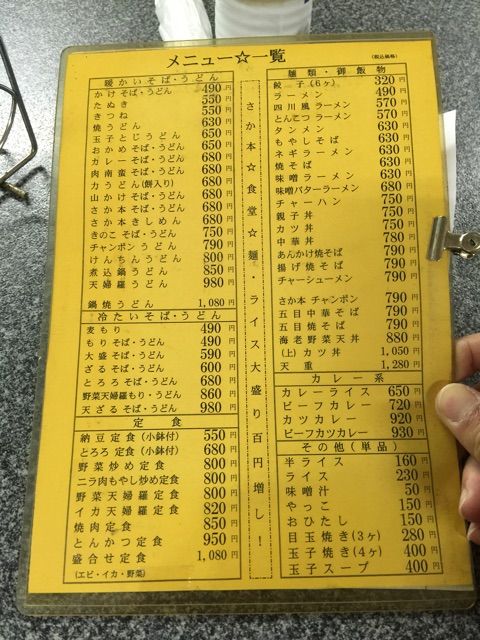 メニュー☆一覧
(税込価格)
暖かいそば・うどん
かけそば・うどん 490円
たぬき 550円
きつね 550円
焼うどん 630円
玉子とじうどん 650円
おかめそば・うどん 680円
カレーそば・うどん 680円
肉南蛮そば・うどん 680円
力うどん(餅入り) 680円
山かけそば・うどん 680円
さか本そば・うどん 680円
さか本きしめん 680円
きのこそば・うどん 750円
チャンポンうどん 790円
けんちんうどん 800円
煮込鍋うどん 850円
天婦羅うどん 980円
鍋焼うどん 1,080円
冷たいそば・うどん
麦もり 490円
もりそば・うどん 490円
大盛そば・うどん 590円
ざるそば・うどん 600円
とろろそば・うどん 680円
野菜天婦羅もり・うどん 860円
天ざるそば・うどん 980円
定食
納豆定食(小鉢付) 550円
とろろ定食(小鉢付) 680円
野菜炒め定食 800円
ニラ肉もやし炒め定食 800円
野菜天婦羅定食 800円
イカ天婦羅定食 820円
焼肉定食 850円
とんかつ定食 950円
盛合せ定食 1,080円
(エビ・イカ・野菜)
さか本☆食堂☆麺・ライス大盛り百円増し!
麺類・御飯物
餃子(6ヶ) 320円
ラーメン 490円
四川風ラーメン 570円
とんこつラーメン 570円
タンメン 630円
もやしそば 630円
ネギラーメン 630円
焼そば 630円
味噌ラーメン 630円
味噌バターラーメン 680円
チャーハン 750円
親子丼 750円
カツ丼 750円
中華丼 780円
あんかけ焼そば 790円
揚げ焼そば 790円
チャーシューメン 790円
さか本チャンポン 790円
五目中華そば 790円
五目焼そば 790円
海老野菜天丼 880円
(上)カツ丼 1,050円
天重 1,280円
カレー系
カレーライス 650円
ビーフカレー 720円
カツカレー 920円
ビーフカツカレー 930円
その他(単品)
半ライス 160円
ライス 230円
味噌汁 50円
やっこ 150円
おひたし 150円
目玉焼き(3ヶ) 280円
玉子焼き(4ヶ) 400円
玉子スープ 400円